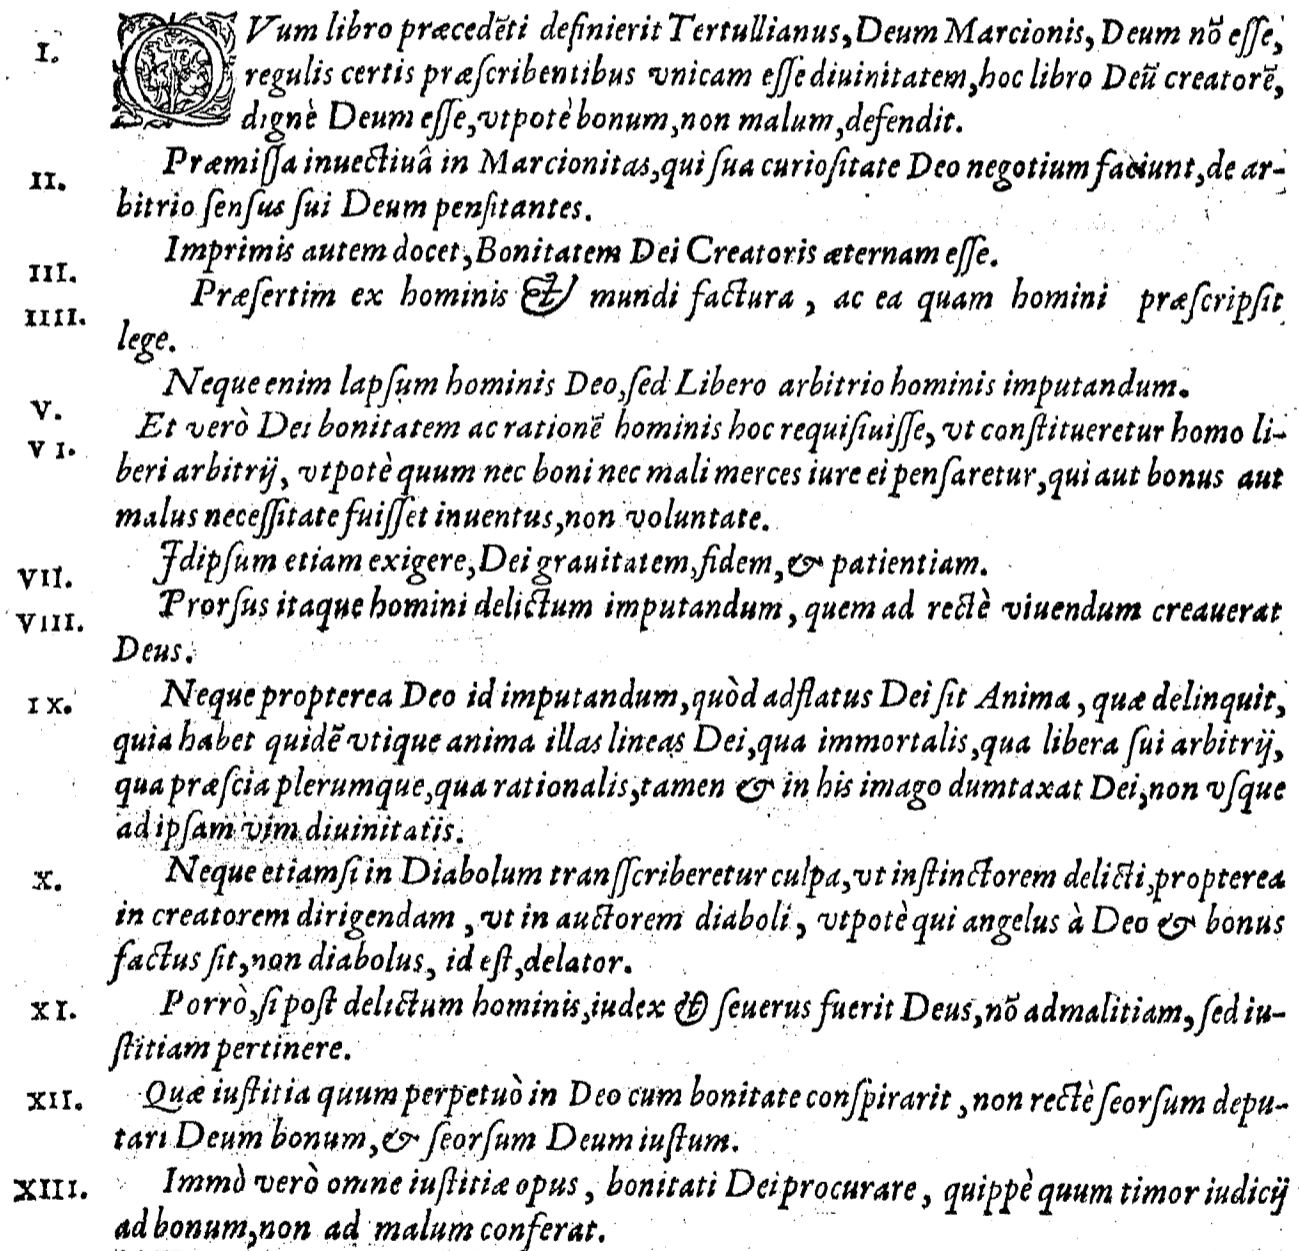 I. QVum libro præcedẽti definierit Tertullianus, Deum Marcionis, Deum nõ eſſe,
regulis certis præſcribentibus vnicam eſſe diuinitatem, hoc libro Deũ creatorẽ,
dignè Deum eſſe, vtpotè bonum, non malum, defendit.
II. Præmiſſa inuectiuâ in Marcionitas, qui ſua curioſitate Deo negotium faciunt, de ar-
bitrio ſenſus ſui Deum penſitantes.
III. Imprimis autem docet, Bonitatem Dei Creatoris æternam eſſe.
IIII. Præſertim ex hominis & mundi factura, ac ea quam homini præſcripſit
lege.
V. Neque enim lapſum hominis Deo, ſed Libero arbitrio hominis imputandum.
VI. Et verò Dei bonitatem ac rationẽ hominis hoc requiſiuiſſe, vt conſtitueretur homo li-
beri arbitrij, vtpotè quum nec boni nec mali merces iure ei penſaretur, qui aut bonus aut
malus neceſſitate fuiſſet inuentus, non voluntate.
VII. Idipſum etiam exigere, Dei grauitatem, fidem, & patientiam.
VIII. Prorſus itaque homini delictum imputandum, quem ad rectè viuendum creauerat
Deus.
IX. Neque propterea Deo id imputandum, quòd adflatus Dei ſit Anima, quæ delinquit,
quia habet quidẽ vtique anima illas lineas Dei, qua immortalis, qua libera ſui arbitrij,
qua præſcia plerumque, qua rationalis, tamen & in his imago dumtaxat Dei, non vſque
ad ipſam vim diuinitatis.
X. Neque etiamſi in Diabolum tranſſcriberetur culpa, vt inſtinctorem delicti, propterea
in creatorem dirigendam, vt in auctorem diaboli, vtpotè qui angelus à Deo & bonus
factus ſit, non diabolus, id eſt, delator.
XI. Porrò, ſi poſt delictum hominis, iudex & ſeuerus fuerit Deus, nõ ad malitiam, ſed iu-
ſtitiam pertinere.
XII. Quæ iuſtitia quum perpetuò in Deo cum bonitate conſpirarit, non rectè ſeorſum depu-
tari Deum bonum, & ſeorſum Deum iuſtum.
XIII. Immò verò omne iuſtitiæ opus, bonitati Dei procurare, quippè quum timor iudicij
ad bonum, non ad malum conferat.